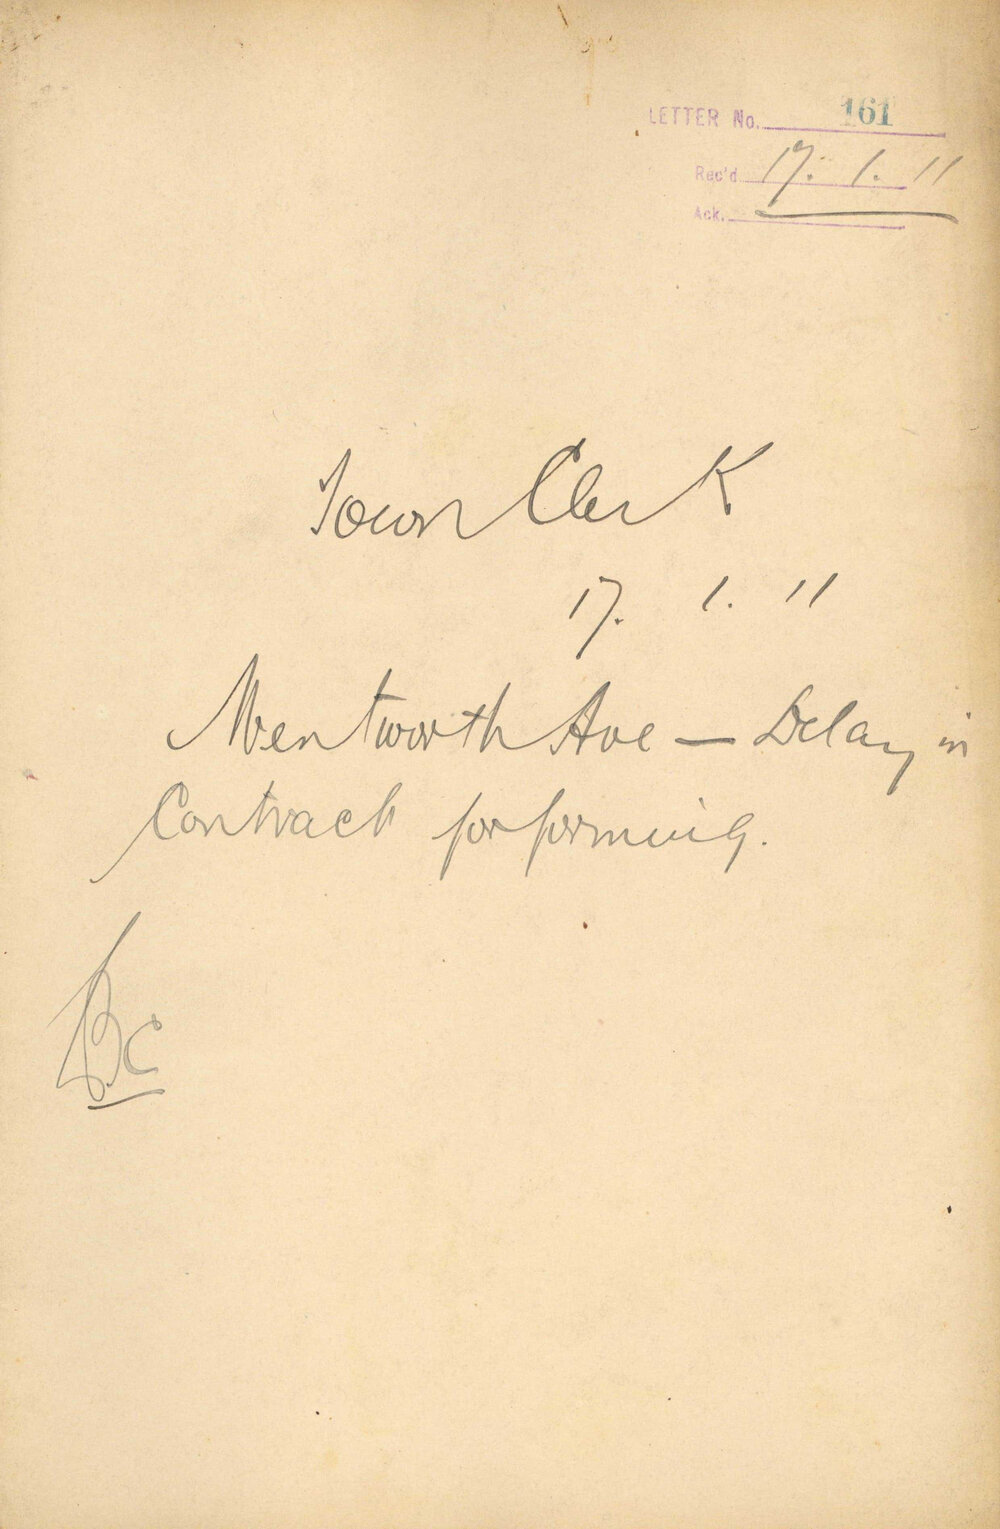 LETTER No. 161
Rec'd 17. 1. 11
Ack.
Town Clerk
17. 1. 11
Wentworth Ave — Delay in
Contract for forming.
BC